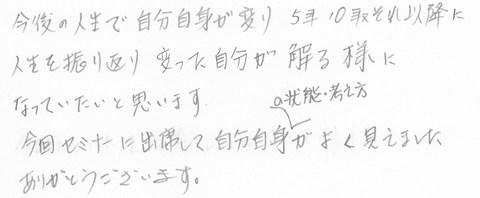 今後の人生で自分自身が変り 5年 10年それ以降に
人生を振り返り 変った自分が 解る様に
なっていたいと思います
の状態・考え方
今回セミナーに出席して自分自身がよく見えました
ありがとうございます。